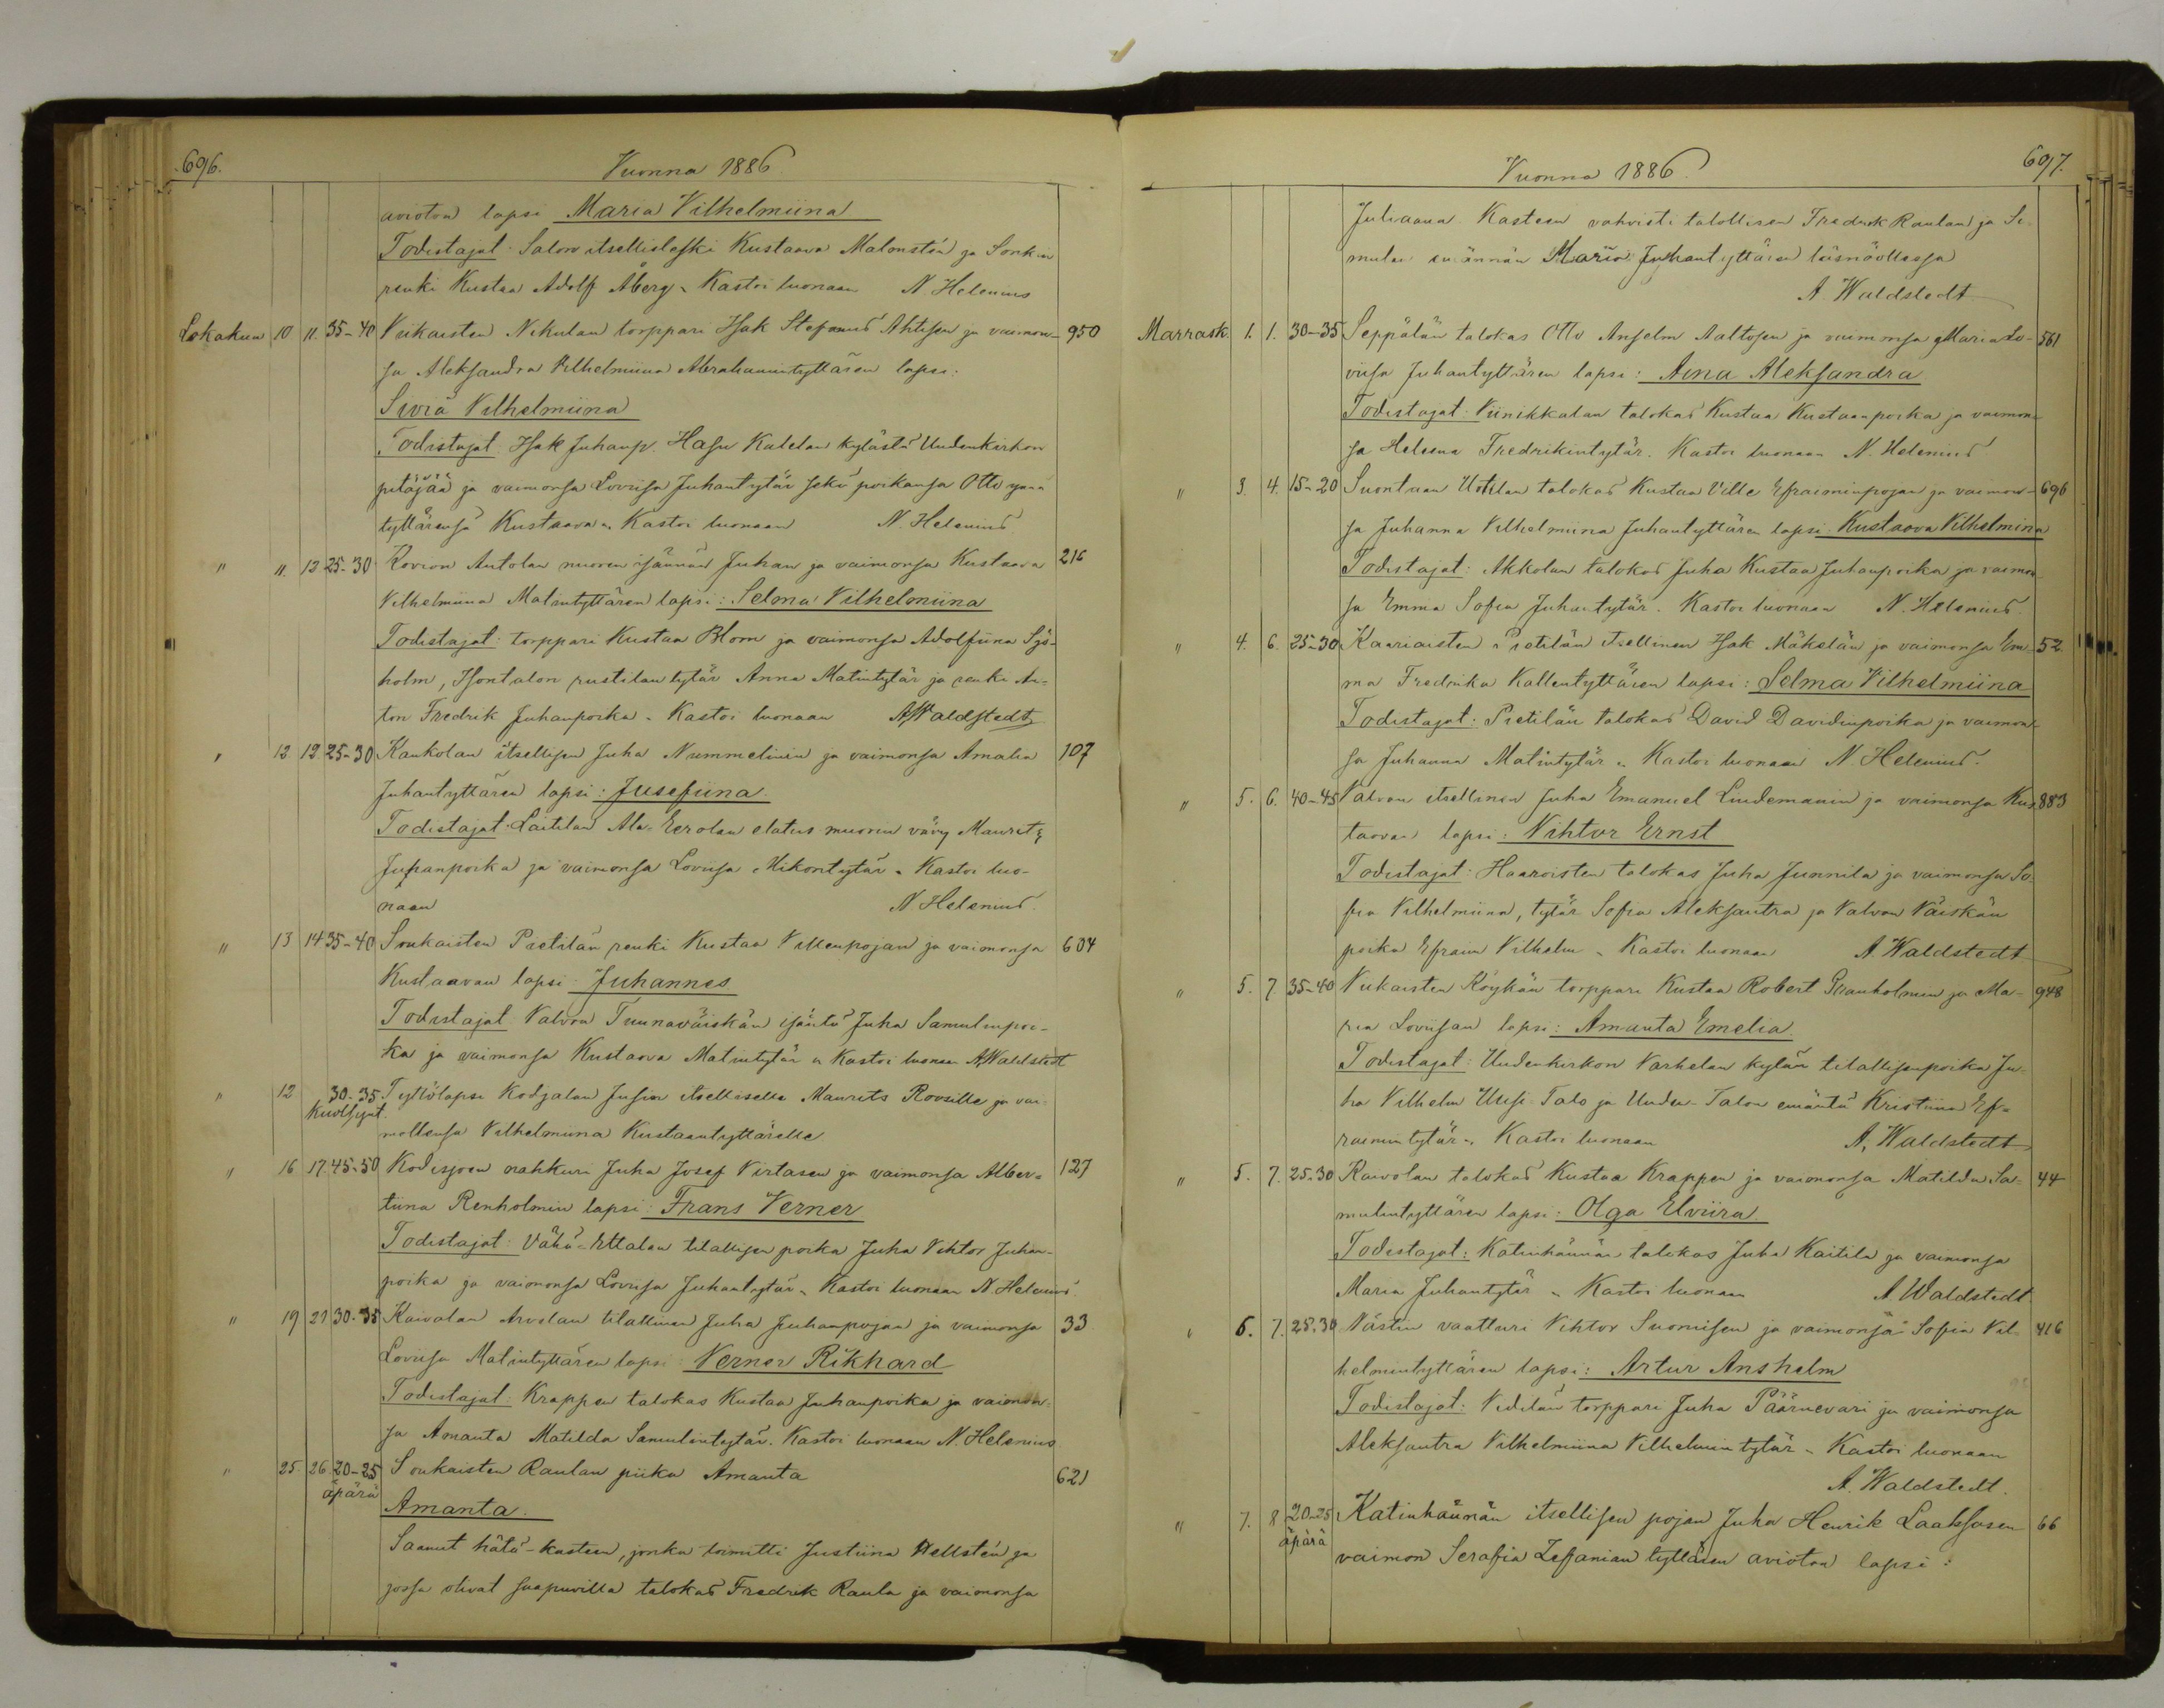 696.
Vuonna 1886
avioton lapsi Maria Vilhelmiina
Todistajat: Salon itsellisleski Kustaava Malmstén ja Sonkin
renki Kustaa Adolf Åberg. Kastoi luonaan N Helenius
Lokakuu 10 11. 35-40 Viikaisten Nikulan torppari Isak Stefanus Ahtisen ja vaimon- 950
sa Aleksandra Vilhelmiina Abrahamintyttären lapsi:
Siviä Vilhelmiina
Todistajat Isak Juhanp. Hasu Kalelan kylästä Uudenkirkon
pitäjää ja vaimonsa Loviisa Juhantytär sekä poikansa Otto ynnä
tyttärensä Kustaava. Kastoi luonaan N. Helenius
" 11. 12 25-30 Kovion Antolan nuoren isännän Juhan ja vaimonsa Kustaava 216
Vilhelmiina Matintyttären lapsi: Selma Vilhelmiina
Todistajat: torppari Kustaa Blom ja vaimonsa Adolfiina Sjö-
holm, Isontalon rustilan tytär Anna Matintytär ja renki An-
ton Fredrik Juhanpoika. Kastoi luonaan A Waldstedt
" 12 12 25-30 Kaukolan itsellisen Juha Nummelinin ja vaimonsa Amalia 107
Juhantyttären lapsi: Jusefiina
Todistajat: Laitilan Ala-Eerolan elatus muorin vävy Maurits
Juhanpoika ja vaimonsa Loviisa Mikontytär. Kastoi luo-
naan N Helenius.
" 13 14 35-40 Soukaisten Pietilän renki Kustaa Villenpojan ja vaimonsa 604
Kustaavan lapsi: Juhannes
Todistajat Valvon Tuunaväiskän isäntä Juha Samulinpoi-
ka ja vaimonsa Kustaava Matintytär. Kastoi luonaan A Waldstedt
" 12 30-35 Tyttölapsi Kodjalan Jusin itselliselle Maurits Roosille ja vai-
kuollsynt.
mollensa Vilhelmiina Kustaantyttärelle
" 16 17. 45-50 Kodisjoen nahkuri Juha Josef Virtasen ja vaimonsa Alber- 127
tiina Renholmin lapsi: Frans Verner
Todistajat: Vähä-Ettalan tilallisen poika Juha Vihtor Juhan-
poika ja vaimonsa Loviisa Juhantytär. Kastoi luonaan N. Helenius
" 19 21 30-35 Kaivolan Arvolan tilallinen Juha Juhanpojan ja vaimonsa 33
Loviisa Matintyttären lapsi: Verner Rikhard
Todistajat: Krappen talokas Kustaa Juhanpoika ja vaimon-
sa Amanta Matilda Samulintytär. Kastoi luonaan N. Helenius
" 25. 26 20-25 Soukaisten Raulan piika Amanta 621
äpärä
Amanta.
Saanut hätä-kasteen, jonka toimitti Justiina Hellstén ja
jossa olivat saapuvilla talokas Fredrik Raula ja vaimonsa
Vuonna 1886.
697.
Juliaana. Kasteen vahvisti talollisen Fredrik Raulan ja Si-
mulan emännän Maria Juhantyttären läsnäollessa
A. Waldstedt
Marrask. 1. 1. 30-35 Seppälän talokas Otto Anselm Aaltosen ja vaimonsa Maria Lo- 561
viisa Juhantyttären lapsi: Aina Aleksandra
Todistajat: Viinikkalan talokas Kustaa Kustaanpoika ja vaimon-
sa Helena Fredrikintytär. Kastoi luonaan N. Helenius
" 3. 4. 15-20 Suontaan Uotilan talokas Kustaa Ville Efraiminpojan ja vaimon- 696
sa Juhanna Vilhelmiina Juhantyttären lapsi: Kustaava Vilhelmina
Todistajat: Akkolan talokas Juha Kustaa Juhanpoika ja vaimon-
sa Emma Sofia Juhantytär. Kastoi luonaan N. Helenius.
" 4. 6. 25-30 Kaariaisten Pietilän itsellinen Isak Mäkelän ja vaimonsa Em- 52.
ma Fredrika Kallentyttären lapsi: Selma Vilhelmiina
Todistajat: Pietilän talokas David Davidinpoika ja vaimon-
sa Juhanna Matintytär. Kastoi luonaan N. Helenius.
" 5. 6. 40-45 Valvon itsellinen Juha Emanuel Lindemanin ja vaimonsa Kus- 883
taavan lapsi: Vihtor Ernst
Todistajat: Haaroisten talokas Juha Junnila ja vaimonsa So-
fia Vilhelmiina, tytär Sofia Aleksantra ja Valvon Väiskän
poika Efraim Vilhelm. Kastoi luonaan A Waldstedt
" 5. 7 35-40 Viikaisten Köykän torppari Kustaa Robert Granholmin ja Ma- 948
ria Loviisan lapsi: Amanta Emelia.
Todistajat: Uudenkirkon Varhelan kylän tilallisenpoika Ju-
ha Vilhelm Uusi-Talo ja Uuden-Talon emäntä Kristiina Ef-
raimintytär. Kastoi luonaan A. Waldstedt
" 5. 7. 25-30 Kaivolan talokas Kustaa Krappen ja vaimonsa Matilda Sa- 44
mulintyttären lapsi: Olga Elviira.
Todistajat: Katinhännän talokas Juha Kaitila ja vaimonsa
Maria Juhantytär. Kastoi luonaan A Waldstedt
" 6. 7. 25-30 Västin vaatturi Vihtor Suomisen ja vaimonsa Sofia Vil- 416
helmintyttären lapsi: Artur Anshelm
Todistajat: Vidilän torppari Juha Päärnevari ja vaimonsa
Aleksantra Vilhelmiina Vilhelmin tytär. Kastoi luonaan
A. Waldstedt.
" 7. 8 20-25 Katinhännän itsellisen pojan Juha Henrik Laaksosen 66
äpärä
vaimon Serafia Zefanian tyttären avioton lapsi: